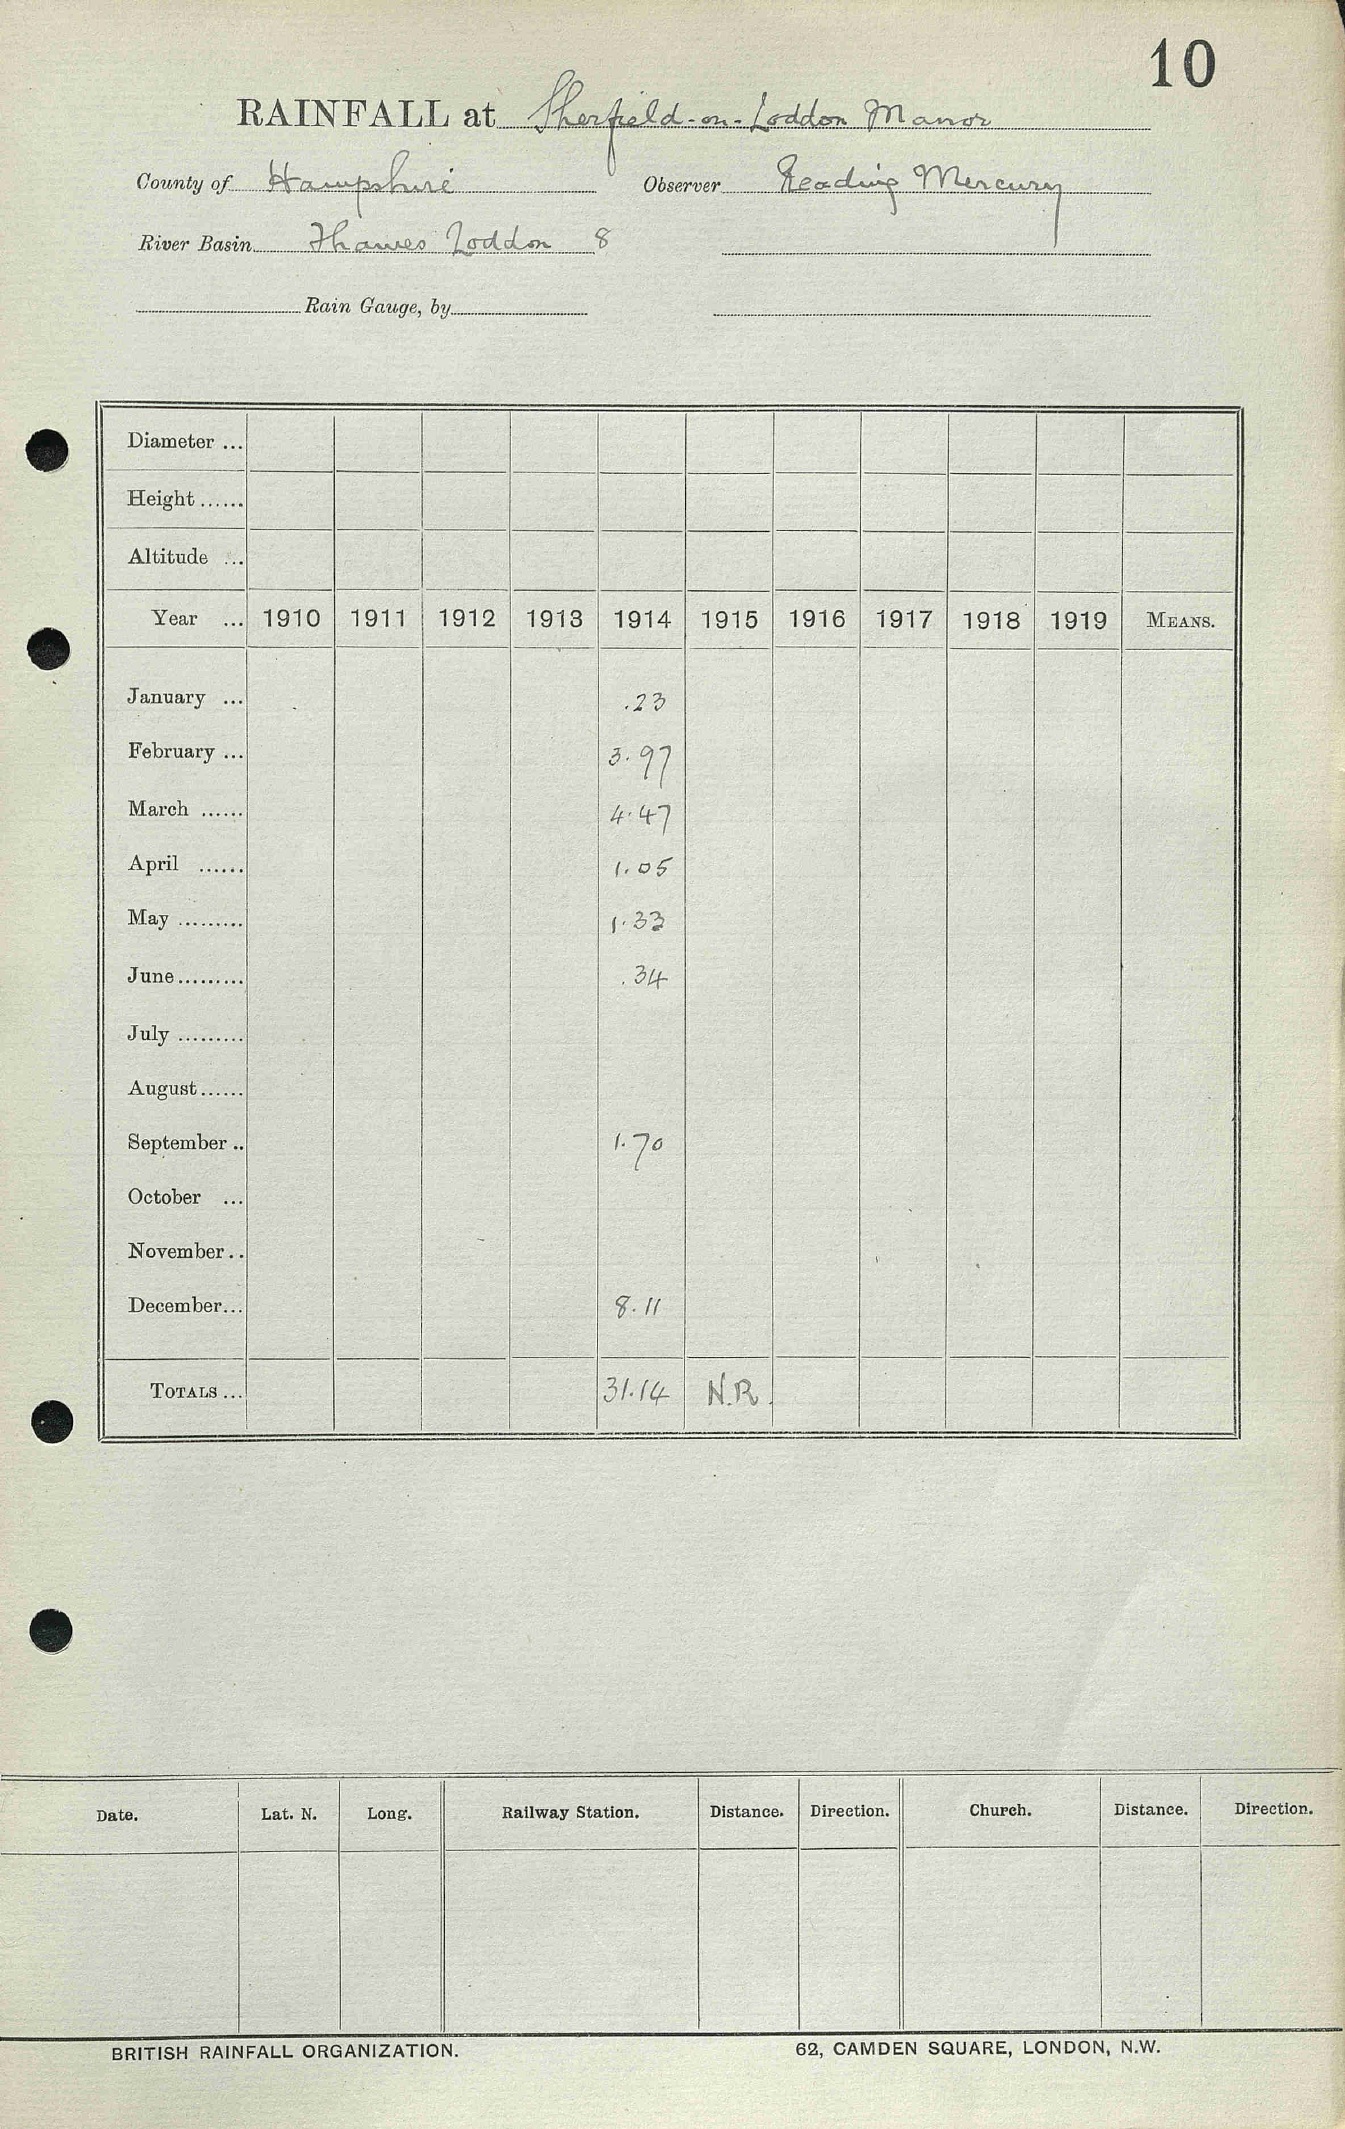 10
RAINFALL at Sherfield-on-Loddon Manor
County of Hampshire Observer Reading Mercury
River Basin Thames Loddon 8
Rain Gauge, by
Diameter ...
Height ......
Altitude ...
Year ... 1910 1911 1912 1913 1914 1915 1916 1917 1918 1919 MEANS.
January ... .23
February ... 3.97
March ...... 4.47
April ...... 1.05
May ......... 1.33
June ......... .34
July .........
August ......
September .. 1.70
October ...
November ..
December ... 8.11
TOTALS ... 31.14 N.R.
Date. Lat. N. Long. Railway Station. Distance. Direction. Church. Distance. Direction.
BRITISH RAINFALL ORGANIZATION. 62, CAMDEN SQUARE, LONDON, N.W.